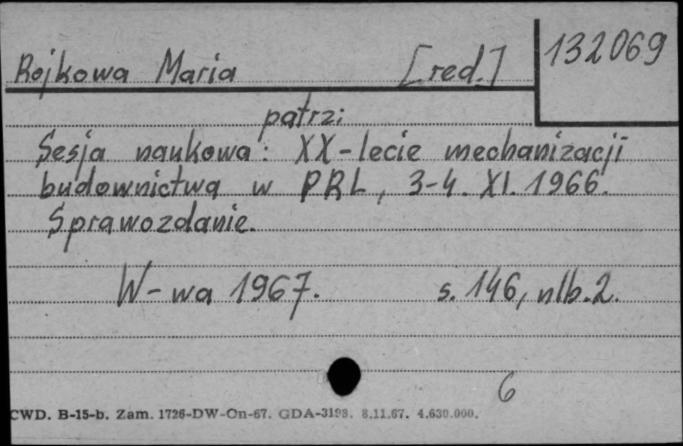 132069
Rojkowa Maria [red.]
patrz:
Sesja naukowa: XX-lecie mechanizacji
budownictwa w PRL, 3-4. XI. 1966.
Sprawozdanie.
W-wa 1967. s. 146, nlb. 2.
6
CWD. B-15-b. Zam. 1726-DW-On-67. GDA-3198. 8.11.67. 4.630.000.